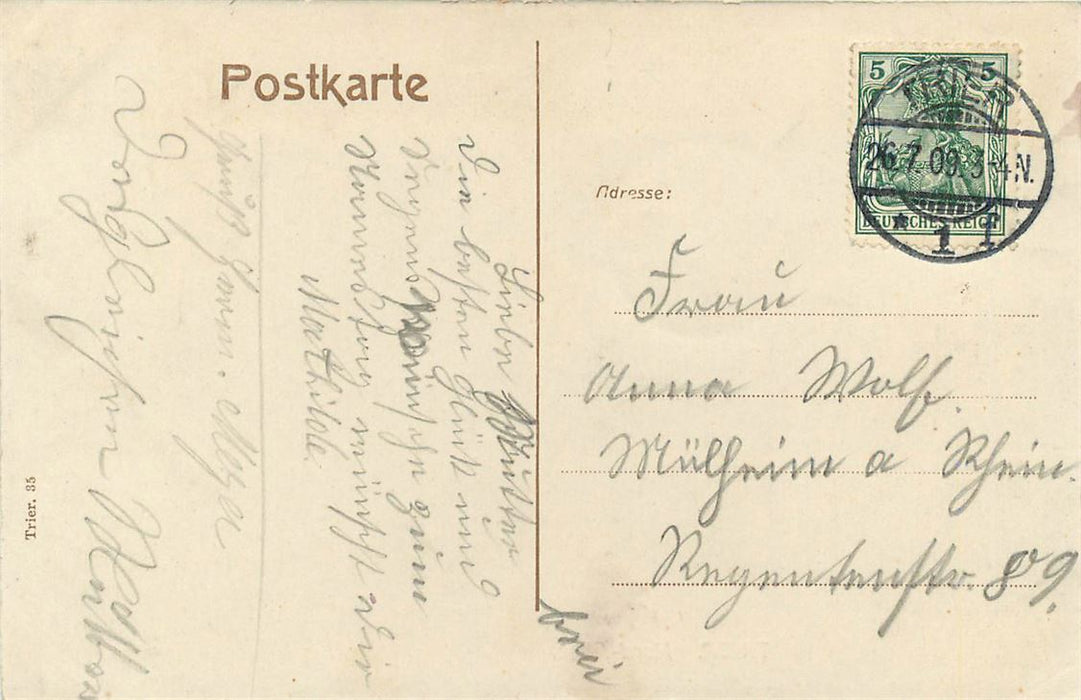 Postkarte
Liebe Mutter
Die besten Glück und
Segens Wünsche zum
Namenstag wünscht Dir
Mathilde
Desgleichen
Adresse:
Frau
Anna Wolf.
Mülheim a Rhein.
Regentenstr. 89.
bei
5 5
DEUTSCHES REICH
TRIER
26.7.09.3-4N.
* 1 f
Trier. 35